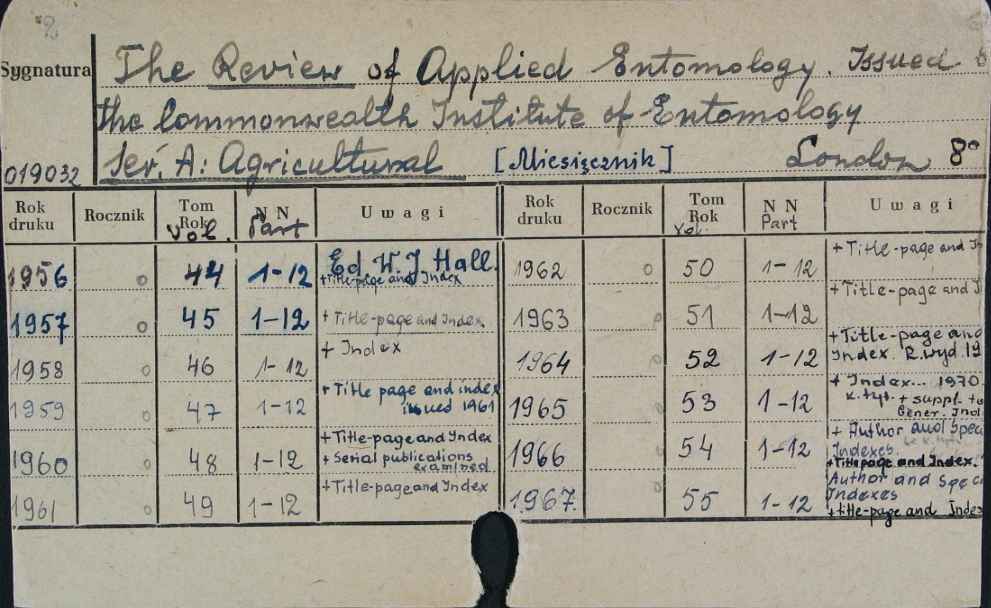 2
Sygnatura
The Review of Applied Entomology. Issued
the Commonwealth Institute of Entomology
019032 Ser. A: Agricultural [Miesięcznik] London 8°
Rok druku Rocznik Tom Rok Vol. N N Part Uwagi Rok druku Rocznik Tom Rok Vol. N N Part Uwagi
1956 o 44 1-12 Ed. W.J. Hall. +Title-page and Index
1957 o 45 1-12 + Title-page and Index
1958 o 46 1-12 + Index
1959 o 47 1-12 + Title page and index issued 1961
1960 o 48 1-12 + Title-page and Index + Serial publications examined
1961 o 49 1-12 + Title-page and Index
1962 o 50 1-12 + Title-page and In
1963 o 51 1-12 + Title-page and I
1964 o 52 1-12 + Title-page and Index. R.wyd. 19
1965 o 53 1-12 + Index... 1970. k.tyt. + suppl. to Gener. Ind
1966 o 54 1-12 + Author and Speci Indexes. + Titlepage and Index.
1967 o 55 1-12 Author and Speci Indexes + title-page and Index